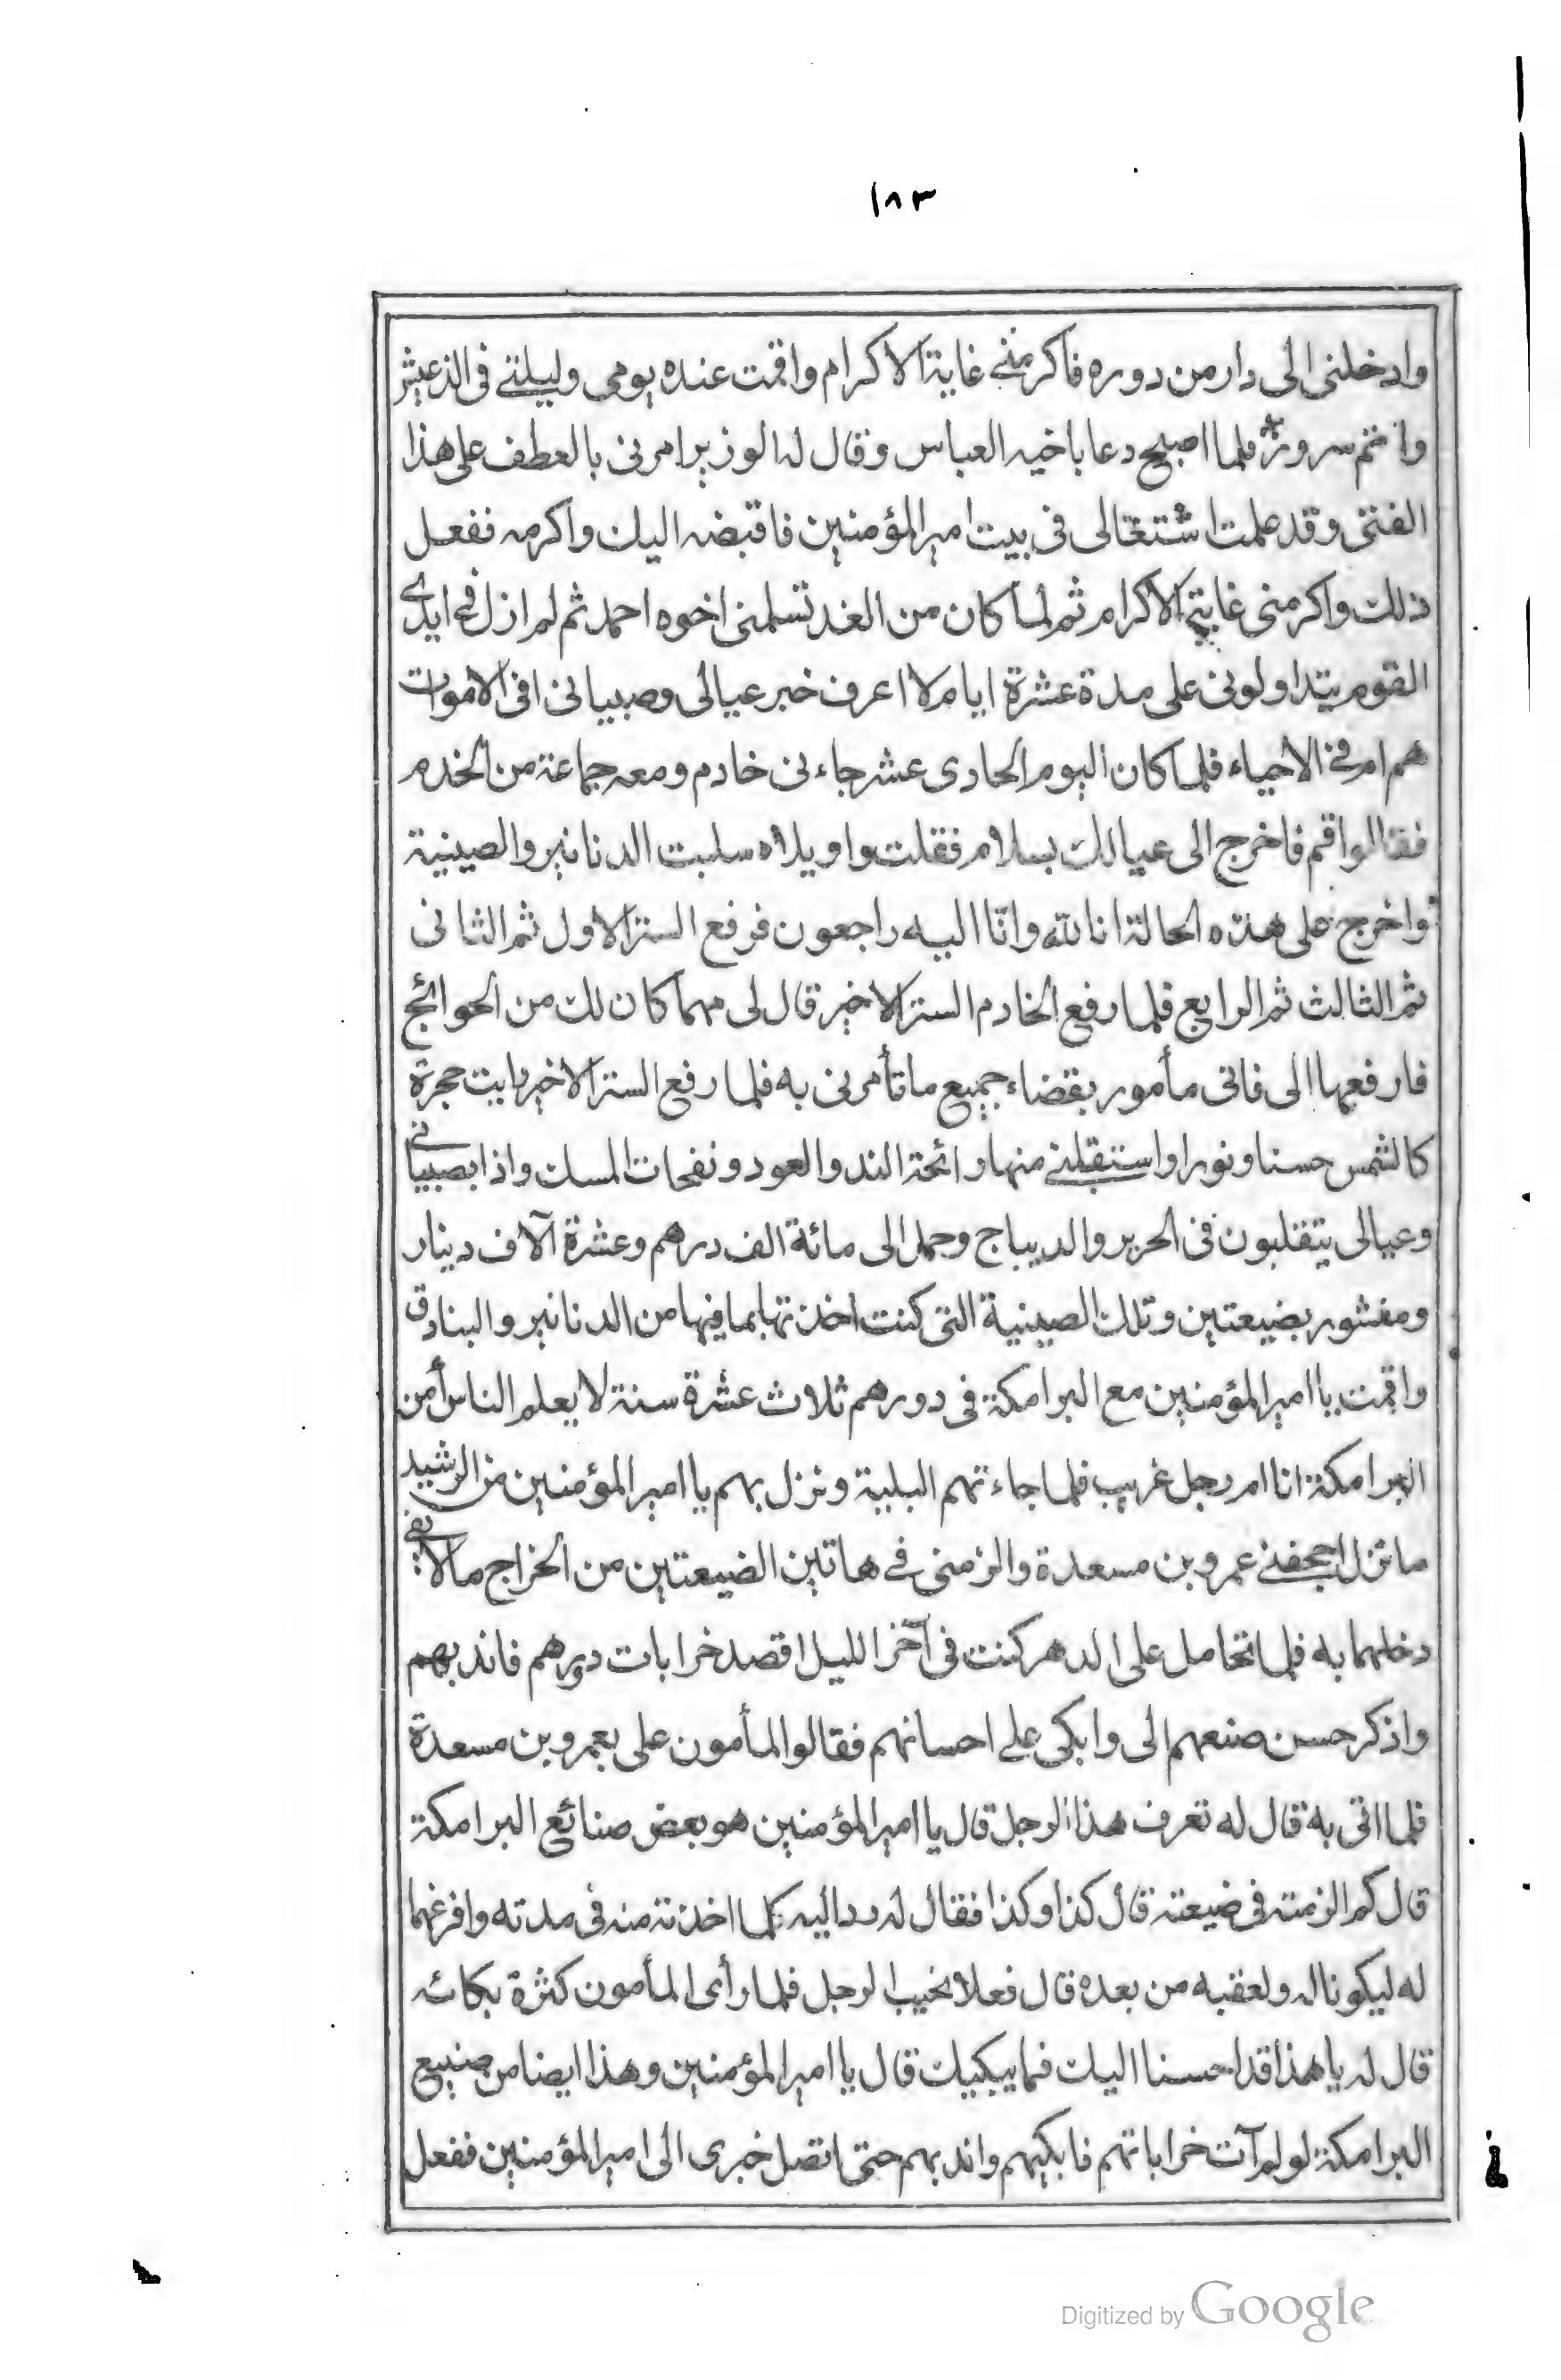 ١٨٣
وادخلنى الى دار من دوره فاكرمنے غاية الاكرام واقمت عنده يومى وليلتے فى الذ عيش
واتم سرور فلما اصبح دعا باخيه العباس وقال له الوزير امرنى بالعطف على هذا
الفتى وقد علمت اشتغالى فى بيت امير المؤمنين فاقبضه اليك واكرمه ففعل
ذلك واكرمنى غاية الاكرام ثم لما كان من الغد تسلمنى اخوه احمد ثم لم ازل فے ايدے
القوم يتداولونى على مدة عشرة ايام لا اعرف خبر عيالى وصبيانى افى الاموات
هم ام فے الاحياء فلما كان اليوم الحادى عشر جاءنى خادم ومعه جماعة من الخدم
فقالوا قم فاخرج الى عيالك بسلام فقلت واويلاه سلبت الدنانير والصينية
واخرج على هذه الحالة انا لله وانّا اليه راجعون فرفع الستر الاول ثم الثانى
ثم الثالث ثم الرابع فلما رفع الخادم الستر الاخير قال لى مهما كان لك من الحوائج
فارفعها الى فانى مأمور بقضاء جميع ما تأمرنى به فلما رفع الستر الاخير رايت حجرة
كالشمس حسنا ونورا واستقبلنے منها رائحة الند والعود ونفحات المسك واذا بصبيانے
وعيالى يتقلبون فى الحرير والديباج وحمل الى مائة الف درهم وعشرة آلاف دينار
ومنشور بضيعتين وتلك الصينية التى كنت اخذتها بما فيها من الدنانير والبنادق
واقمت يا امير المؤمنين مع البرامكة فى دورهم ثلاث عشرة سنة لا يعلم الناس أمن
البرامكة انا ام رجل غريب فلما جاءتهم البلية ونزل بهم يا امير المؤمنين من الرشيد
ما نزل اجحفنے عمرو بن مسعدة والزمنى فے هاتين الضيعتين من الخراج مالا يفے
دخلهما به فلما تحامل على الدهر كنت فى آخر الليل اقصد خرابات ديرهم فاندبهم
واذكر حسن صنعهم الى وابكى علے احسانهم فقالوا المأمون على بعمرو بن مسعدة
فلما اتى به قال له تعرف هذا الرجل قال يا امير المؤمنين هو بعض صنائع البرامكة
قال كم الزمته فى ضيعته قال كذا وكذا فقال له رد اليه كلما اخذته منه فى مدته وافرغهما
له ليكونا له ولعقبه من بعده قال فعلا نحيب الرجل فلما رأى المأمون كثرة بكائه
قال له يا هذا قد احسنا اليك فما يبكيك قال يا امير المؤمنين وهذا ايضا من صنيع
البرامكة لو لم آت خراباتهم فابكيهم واندبهم حتى اتصل خبرى الى امير المؤمنين ففعل
Digitized by Google